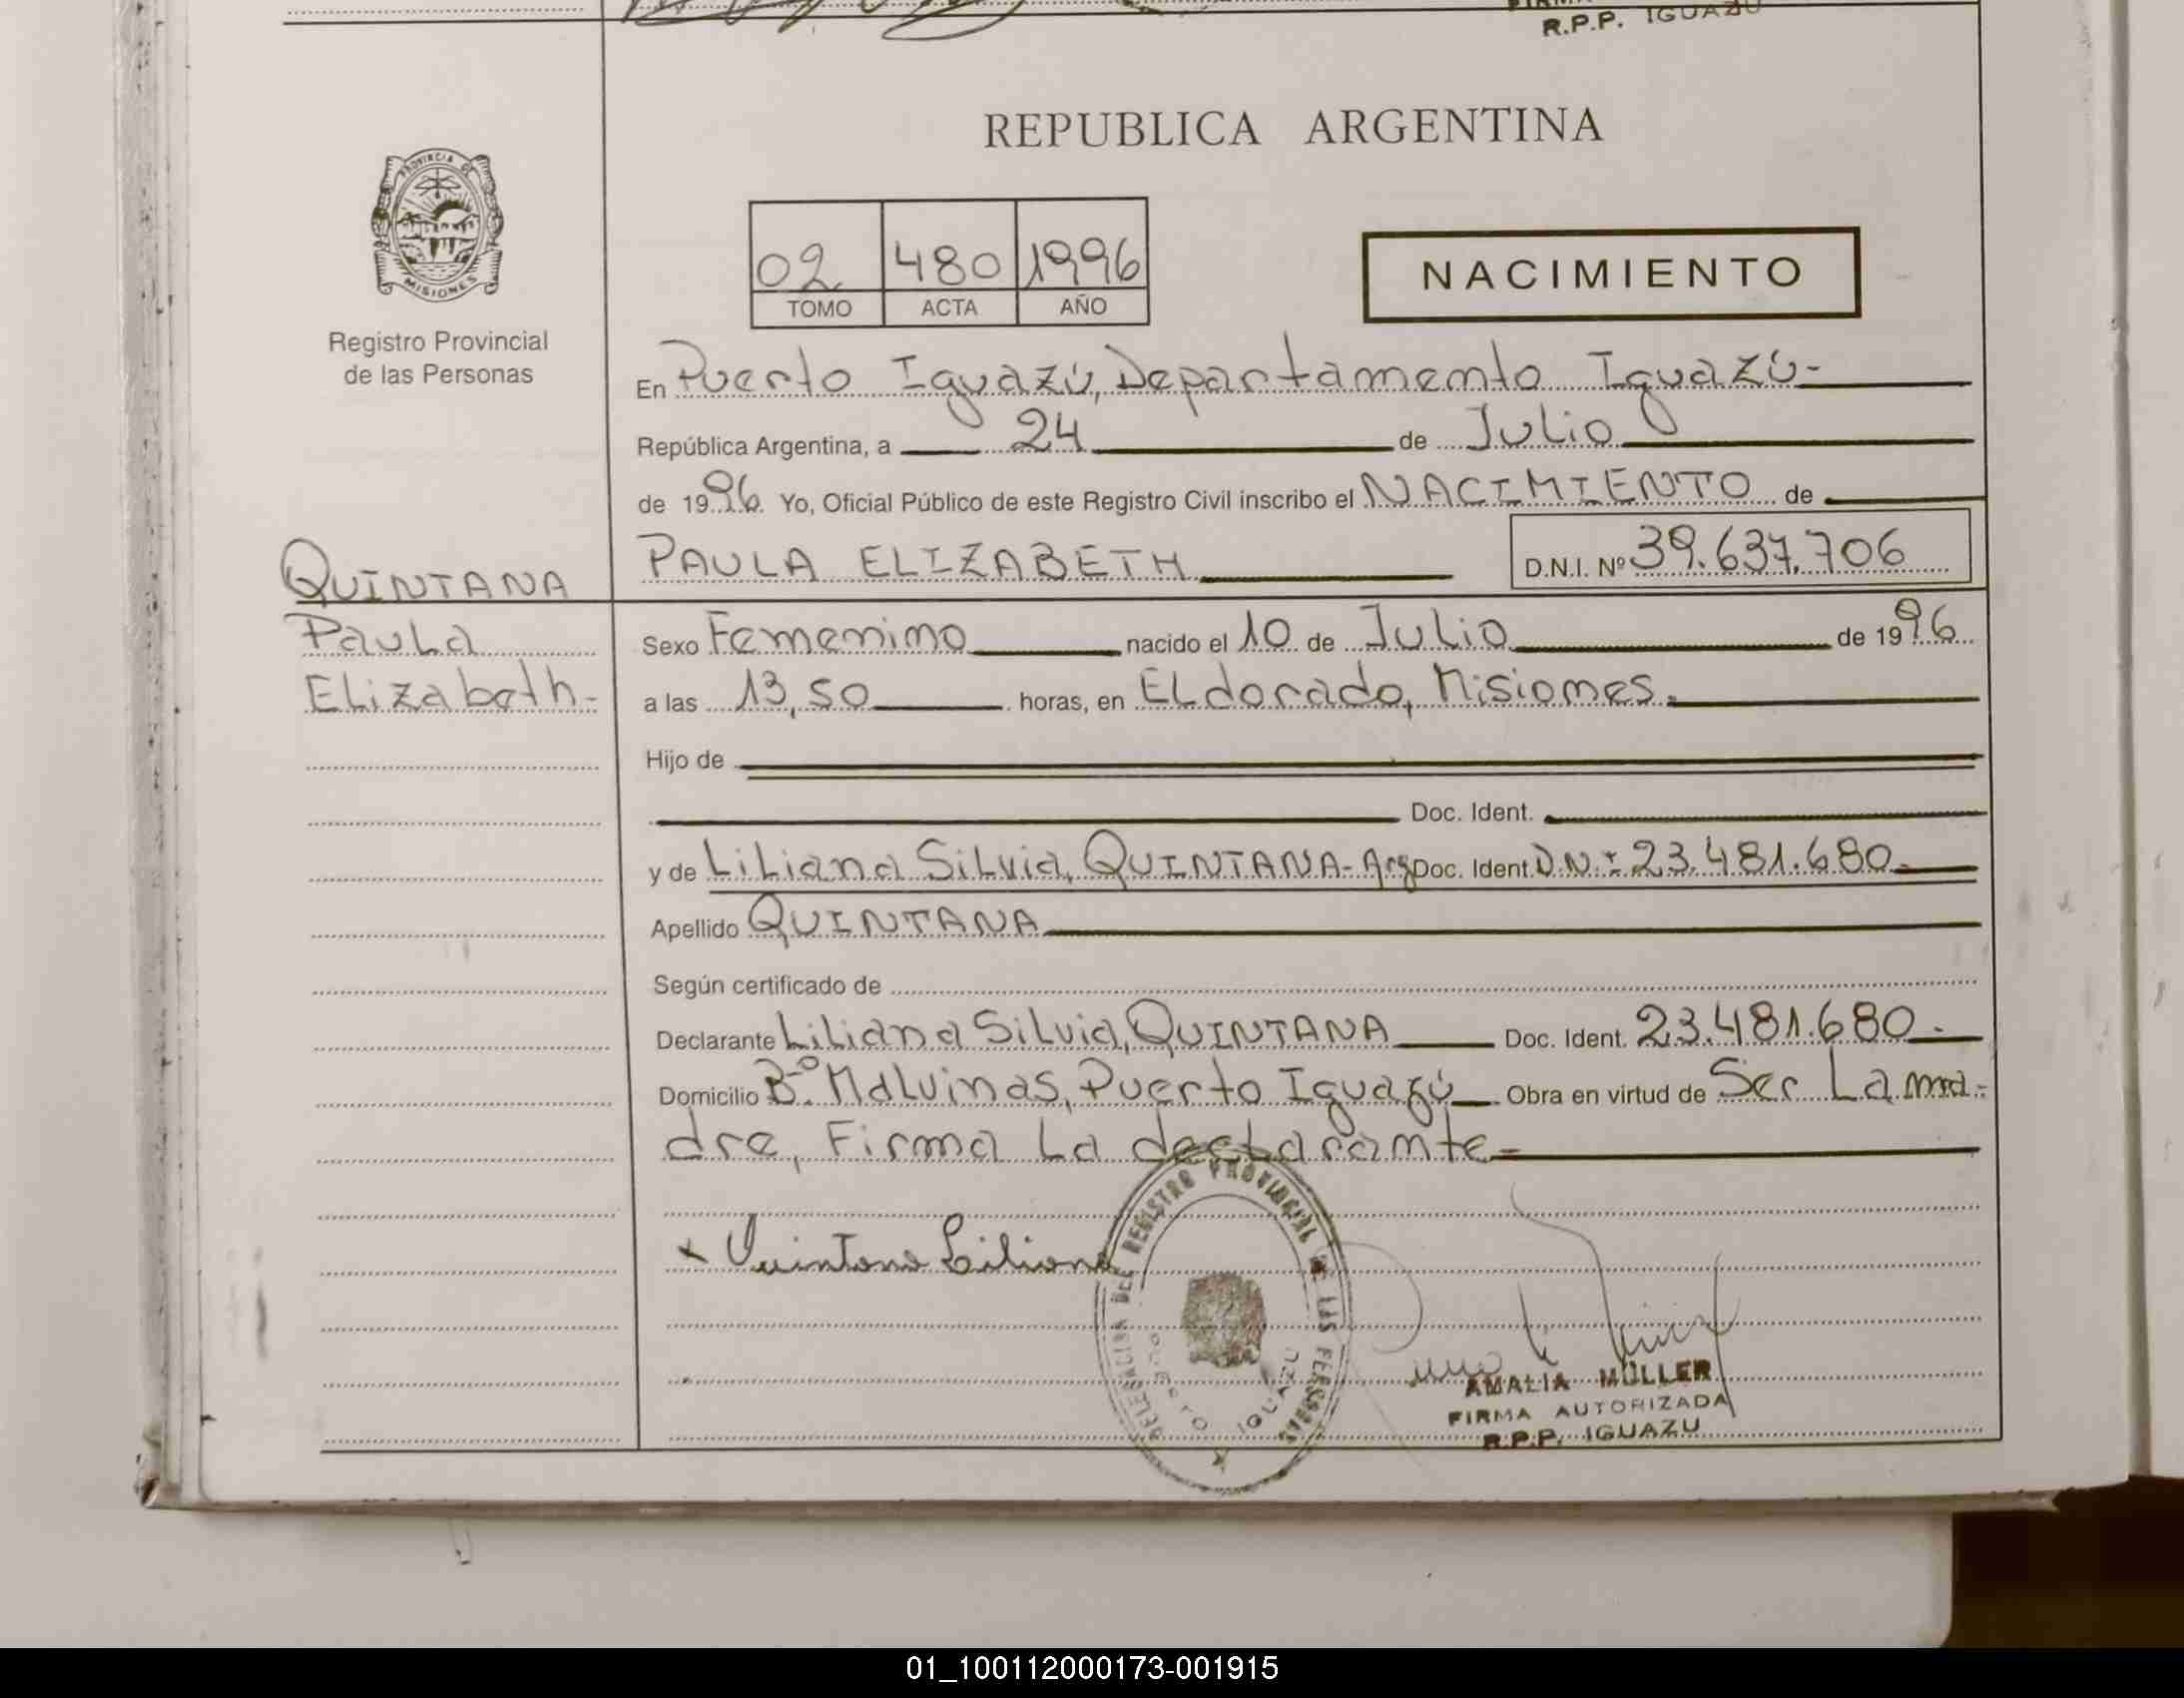 R.P.P. IGUAZU
REPUBLICA ARGENTINA
PROVINCIA DE
MISIONES
Registro Provincial
de las Personas
02 480 1996
TOMO ACTA AÑO
NACIMIENTO
En Puerto Iguazú, Departamento Iguazú-
República Argentina, a 24 de Julio
de 1996 Yo, Oficial Público de este Registro Civil inscribo el NACIMIENTO de
QUINTANA
Paula
Elizabeth-
PAULA ELIZABETH D.N.I. Nº 39.637.706
Sexo Femenino nacido el 10 de Julio de 1996
a las 13,50 horas, en ELdorado, Misiones.
Hijo de
Doc. Ident.
y de Liliana Silvia, QUINTANA- Arg Doc. Ident. D.N.I 23.481.680-
Apellido QUINTANA
Según certificado de
Declarante Liliana Silvia, QUINTANA Doc. Ident. 23.481.680.-
Domicilio Bº Malvinas, Puerto Iguazú Obra en virtud de Ser La ma-
dre, Firma La declarante-
x Quintana Liliana
DELEGACION DEL REGISTRO PROVINCIAL DE LAS PERSONAS
PUERTO IGUAZU
AMALIA MÜLLER
FIRMA AUTORIZADA
R.P.P. IGUAZU
01_100112000173-001915